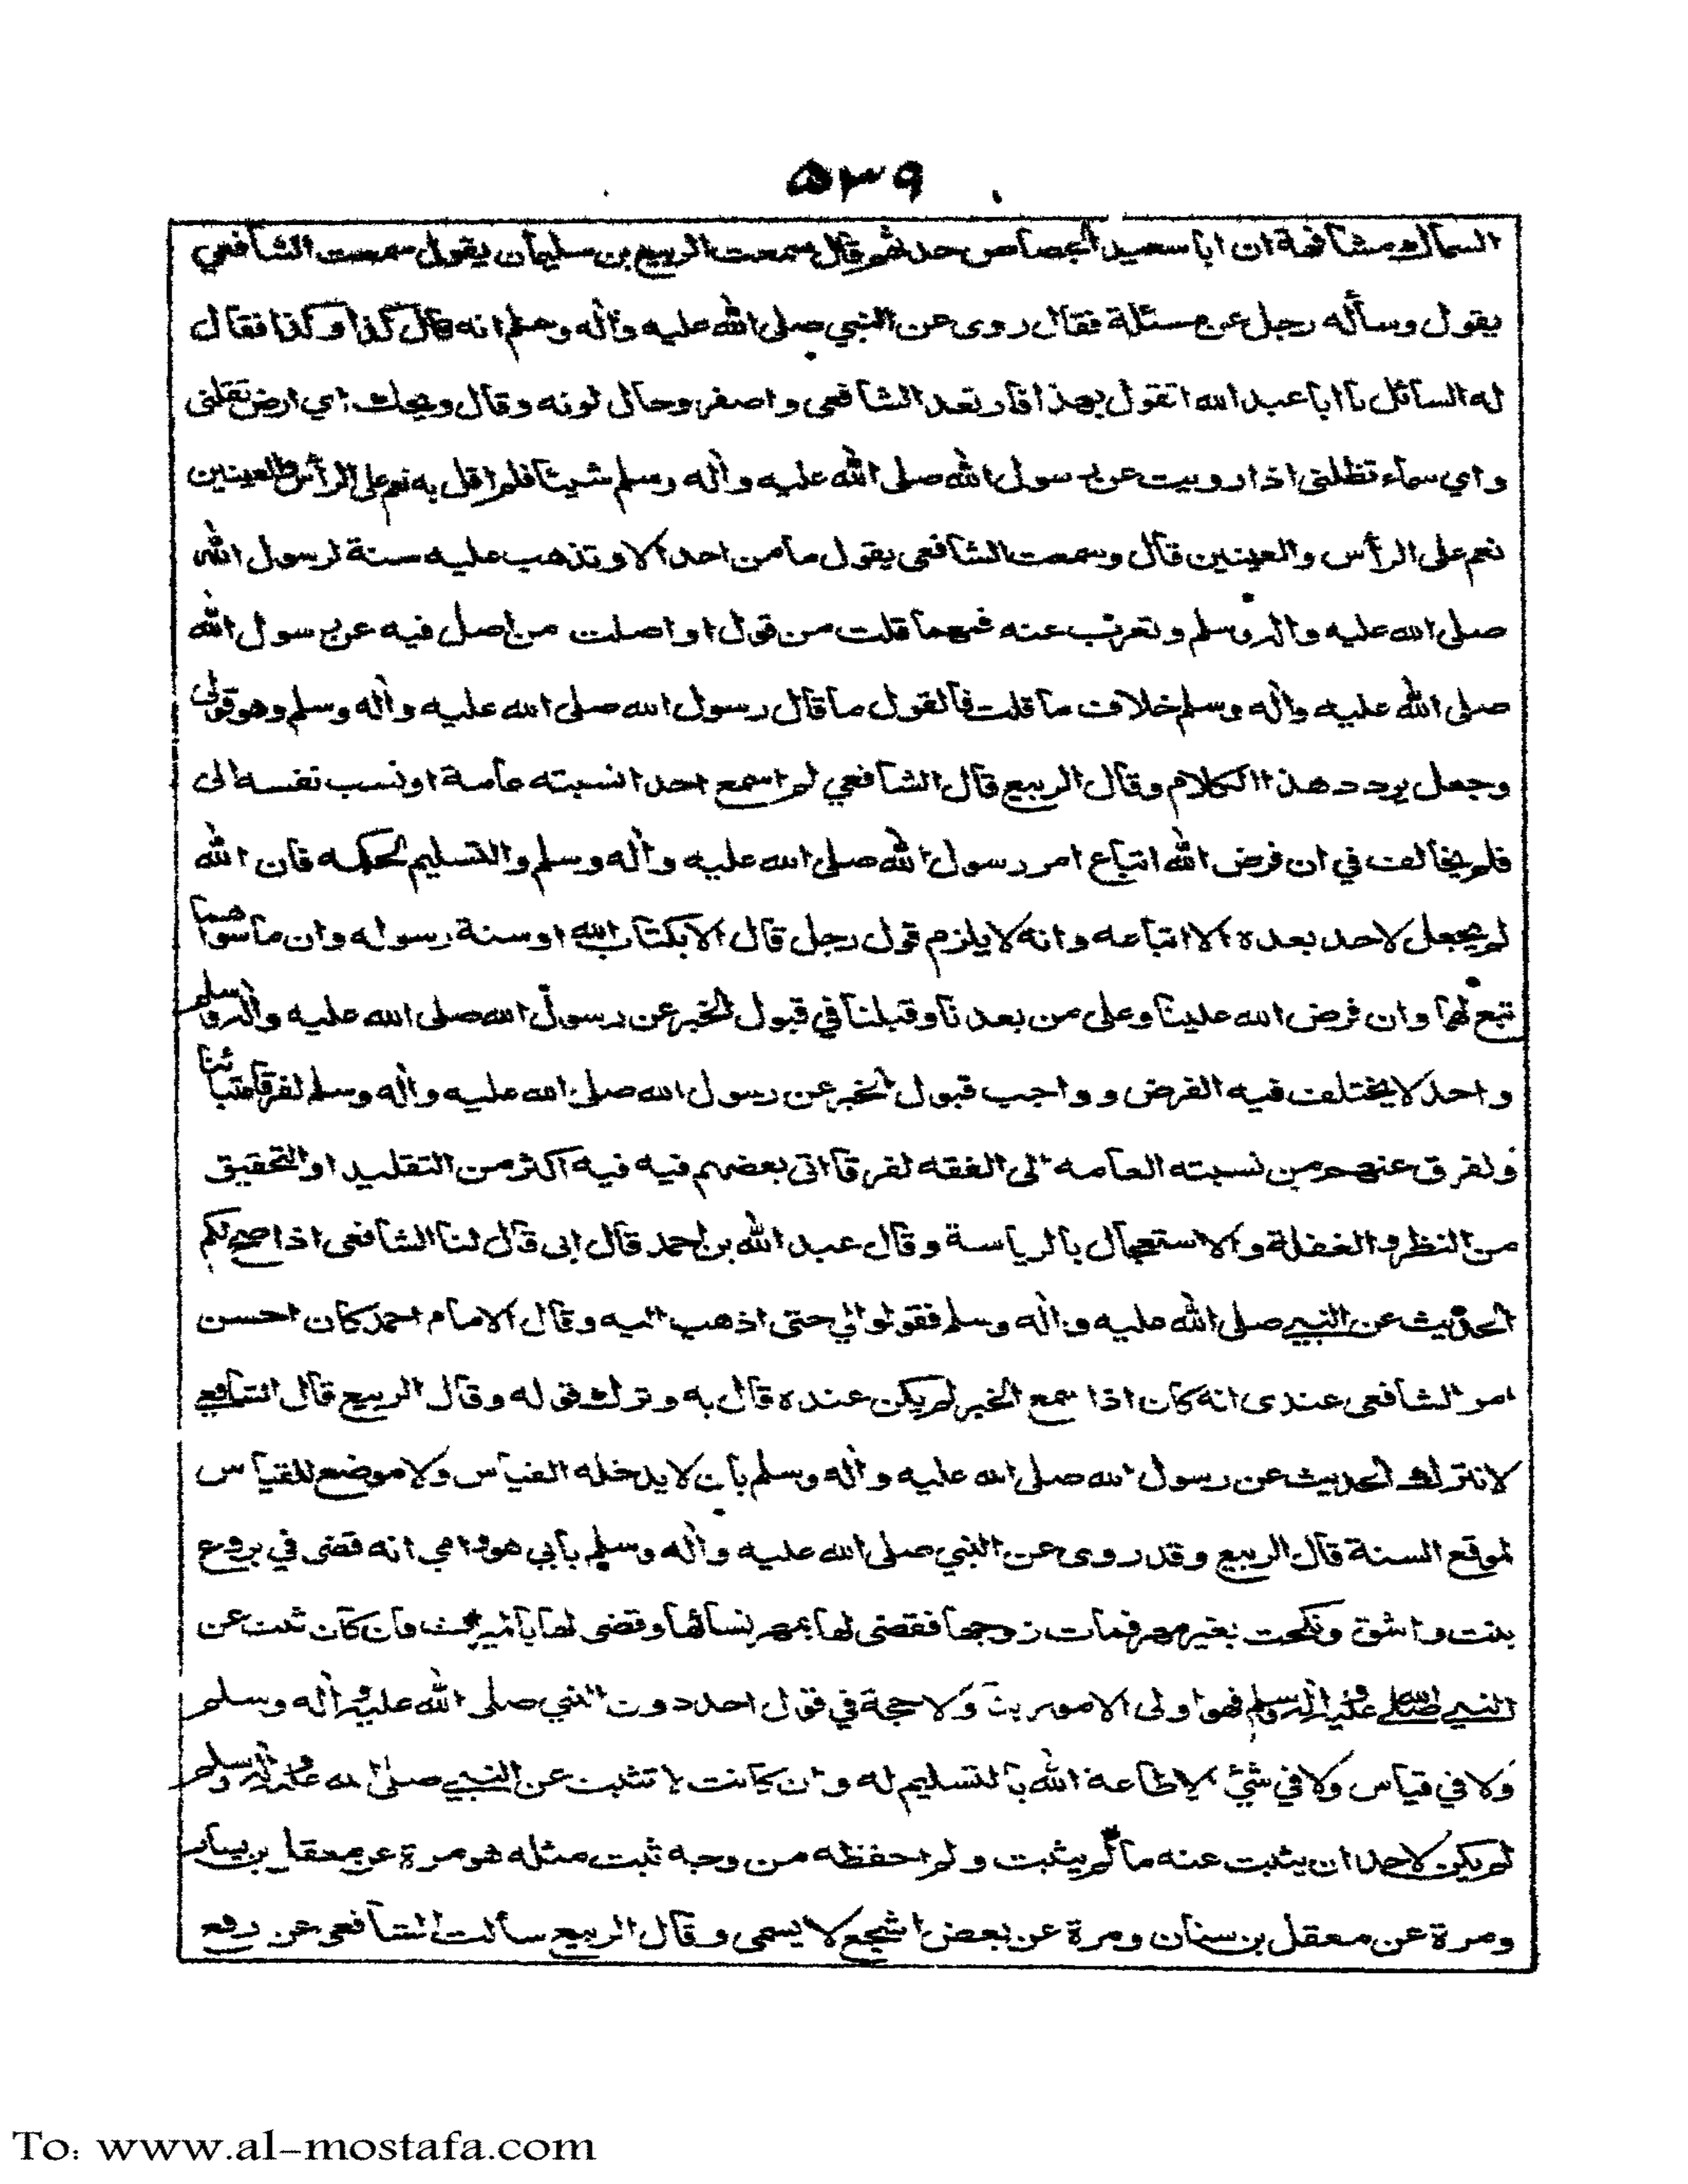 ۵۳۹
السماك مشافهة ان ابا سعيد الجصاص حدثهم قال سمعت الربيع بن سليمان يقول سمعت الشافعي
يقول وسأله رجل عن مسئلة فقال روى عن النبي صلى الله عليه وآله وسلم انه قال كذا وكذا فقال
له السائل يا ابا عبد الله اتقول بهذا فارتعد الشافعى واصفر وحال لونه وقال ويحك اي ارض تقلنى
واي سماء تظلنى اذا رويت عن رسول الله صلى الله عليه وآله وسلم شيئا فلم اقل به نعم على الرأس والعينين
نعم على الرأس والعينين قال وسمعت الشافعى يقول ما من احد الا وتذهب عليه سنة لرسول الله
صلى الله عليه واله وسلم وتعزب عنه فمهما قلت من قول او اصلت من اصل فيه عن رسول الله
صلى الله عليه وآله وسلم خلاف ما قلت فالقول ما قال رسول الله صلى الله عليه وآله وسلم وهو قولى
وجعل يردد هذا الكلام وقال الربيع قال الشافعي لم اسمع احدا نسبته عامة او نسب نفسه الى
فلم يخالف في ان فرض الله اتباع امر رسول الله صلى الله عليه وآله وسلم والتسليم لحكمه فان الله
لم يجعل لاحد بعده الا اتباعه وانه لا يلزم قول رجل قال الا بكتاب الله او سنة رسوله وان ما سواهما
تبع لهما وان فرض الله علينا وعلى من بعدنا وقبلنا في قبول الخبر عن رسول الله صلى الله عليه واله وسلم
واحد لا يختلف فيه الفرض وواجب قبول الخبر عن رسول الله صلى الله عليه وآله وسلم لفرقا
ولفرق عنهم من نسبته العامه الى الفقه لفرقا اتى بعضهم فيه فيه اكثر من التقليد او التحقيق
من النظر والغفلة والاستعجال بالرياسة وقال عبد الله بن احمد قال ابى قال لنا الشافعى اذا صح لكم
الحديث عن النبي صلى الله عليه وآله وسلم فقولوا لي حتى اذهب اليه وقال الامام احمد كان احسن
امر الشافعى عندى انه كان اذا سمع الخبر لم يكن عنده قال به وترك قوله وقال الربيع قال الشافعي
لا نترك الحديث عن رسول الله صلى الله عليه وآله وسلم بان لا يدخله القياس ولا موضع للقياس
لموقع السنة قال الربيع وقد روى عن النبي صلى الله عليه وآله وسلم بابي هو وامي انه قضى في بروع
بنت واشق ونكحت بغير مهر فمات زوجها فقضى لها بمهر نسائها وقضى لها بالميراث فان كان ثبت عن
النبي صلى الله عليه وآله وسلم فهو اولى الامور بنا ولا حجة في قول احد دون النبي صلى الله عليه وآله وسلم
ولا في قياس ولا في شئ الا طاعة الله بالتسليم له وان كانت لا تثبت عن النبي صلى الله عليه وآله وسلم
لم يكن لاحد ان يثبت عنه ما لم يثبت ولم احفظه من وجه ثبت مثله هو مرة عن معقل بن يسار
ومرة عن معقل بن سنان ومرة عن بعض اشجع لا يسمى وقال الربيع سألت الشافعى عن رفع
To: www.al-mostafa.com